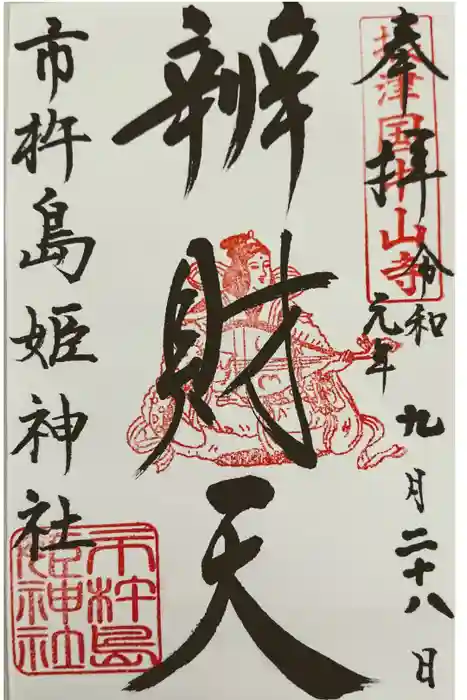 奉拝
摂津国中山寺
令和元年九月二十八日
辨財天
市杵島姫神社
市杵島姫神社